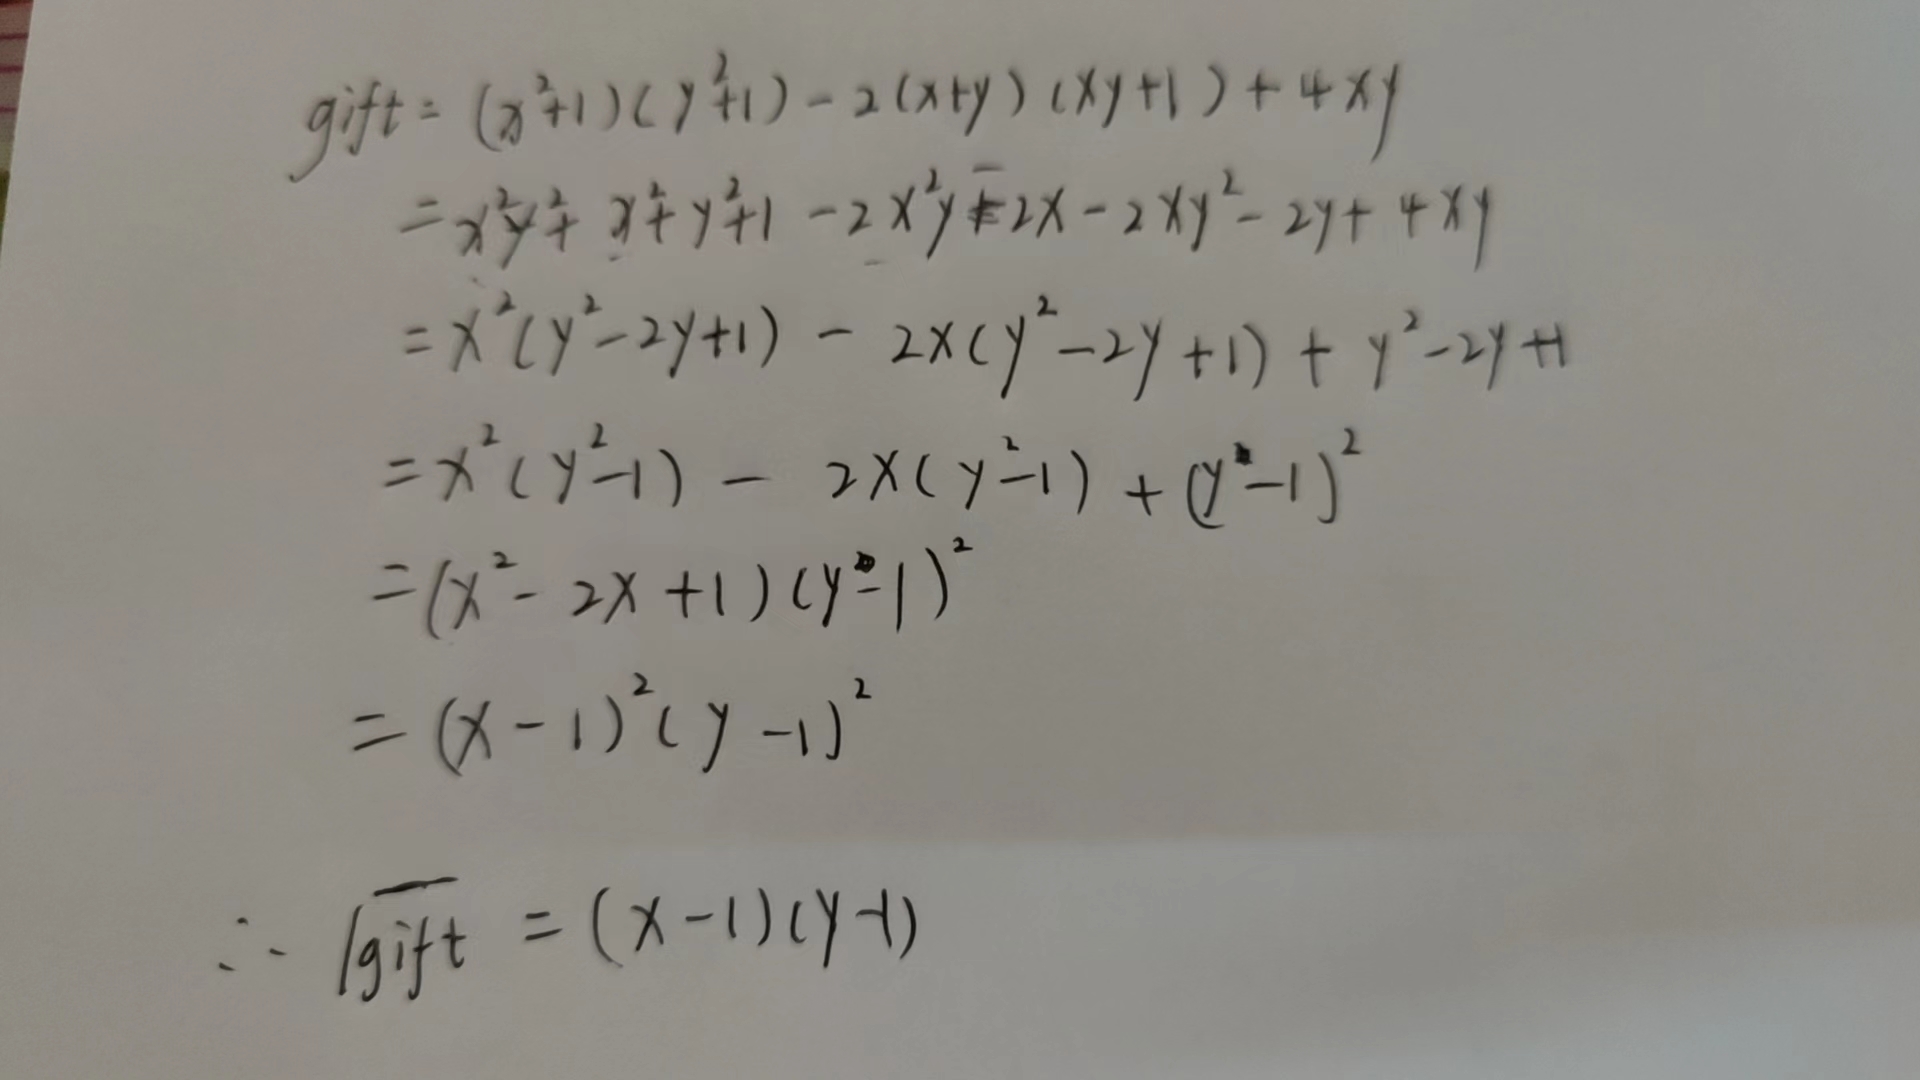 gift = (x²+1)(y²+1) - 2(x+y)(xy+1) + 4xy
= x²y² + x² + y² + 1 - 2x²y - 2x - 2xy² - 2y + 4xy
= x²(y² - 2y + 1) - 2x(y² - 2y + 1) + y² - 2y + 1
= x²(y² - 1) - 2x(y² - 1) + (y - 1)²
= (x² - 2x + 1)(y - 1)²
= (x - 1)²(y - 1)²
∴ √gift = (x - 1)(y - 1)